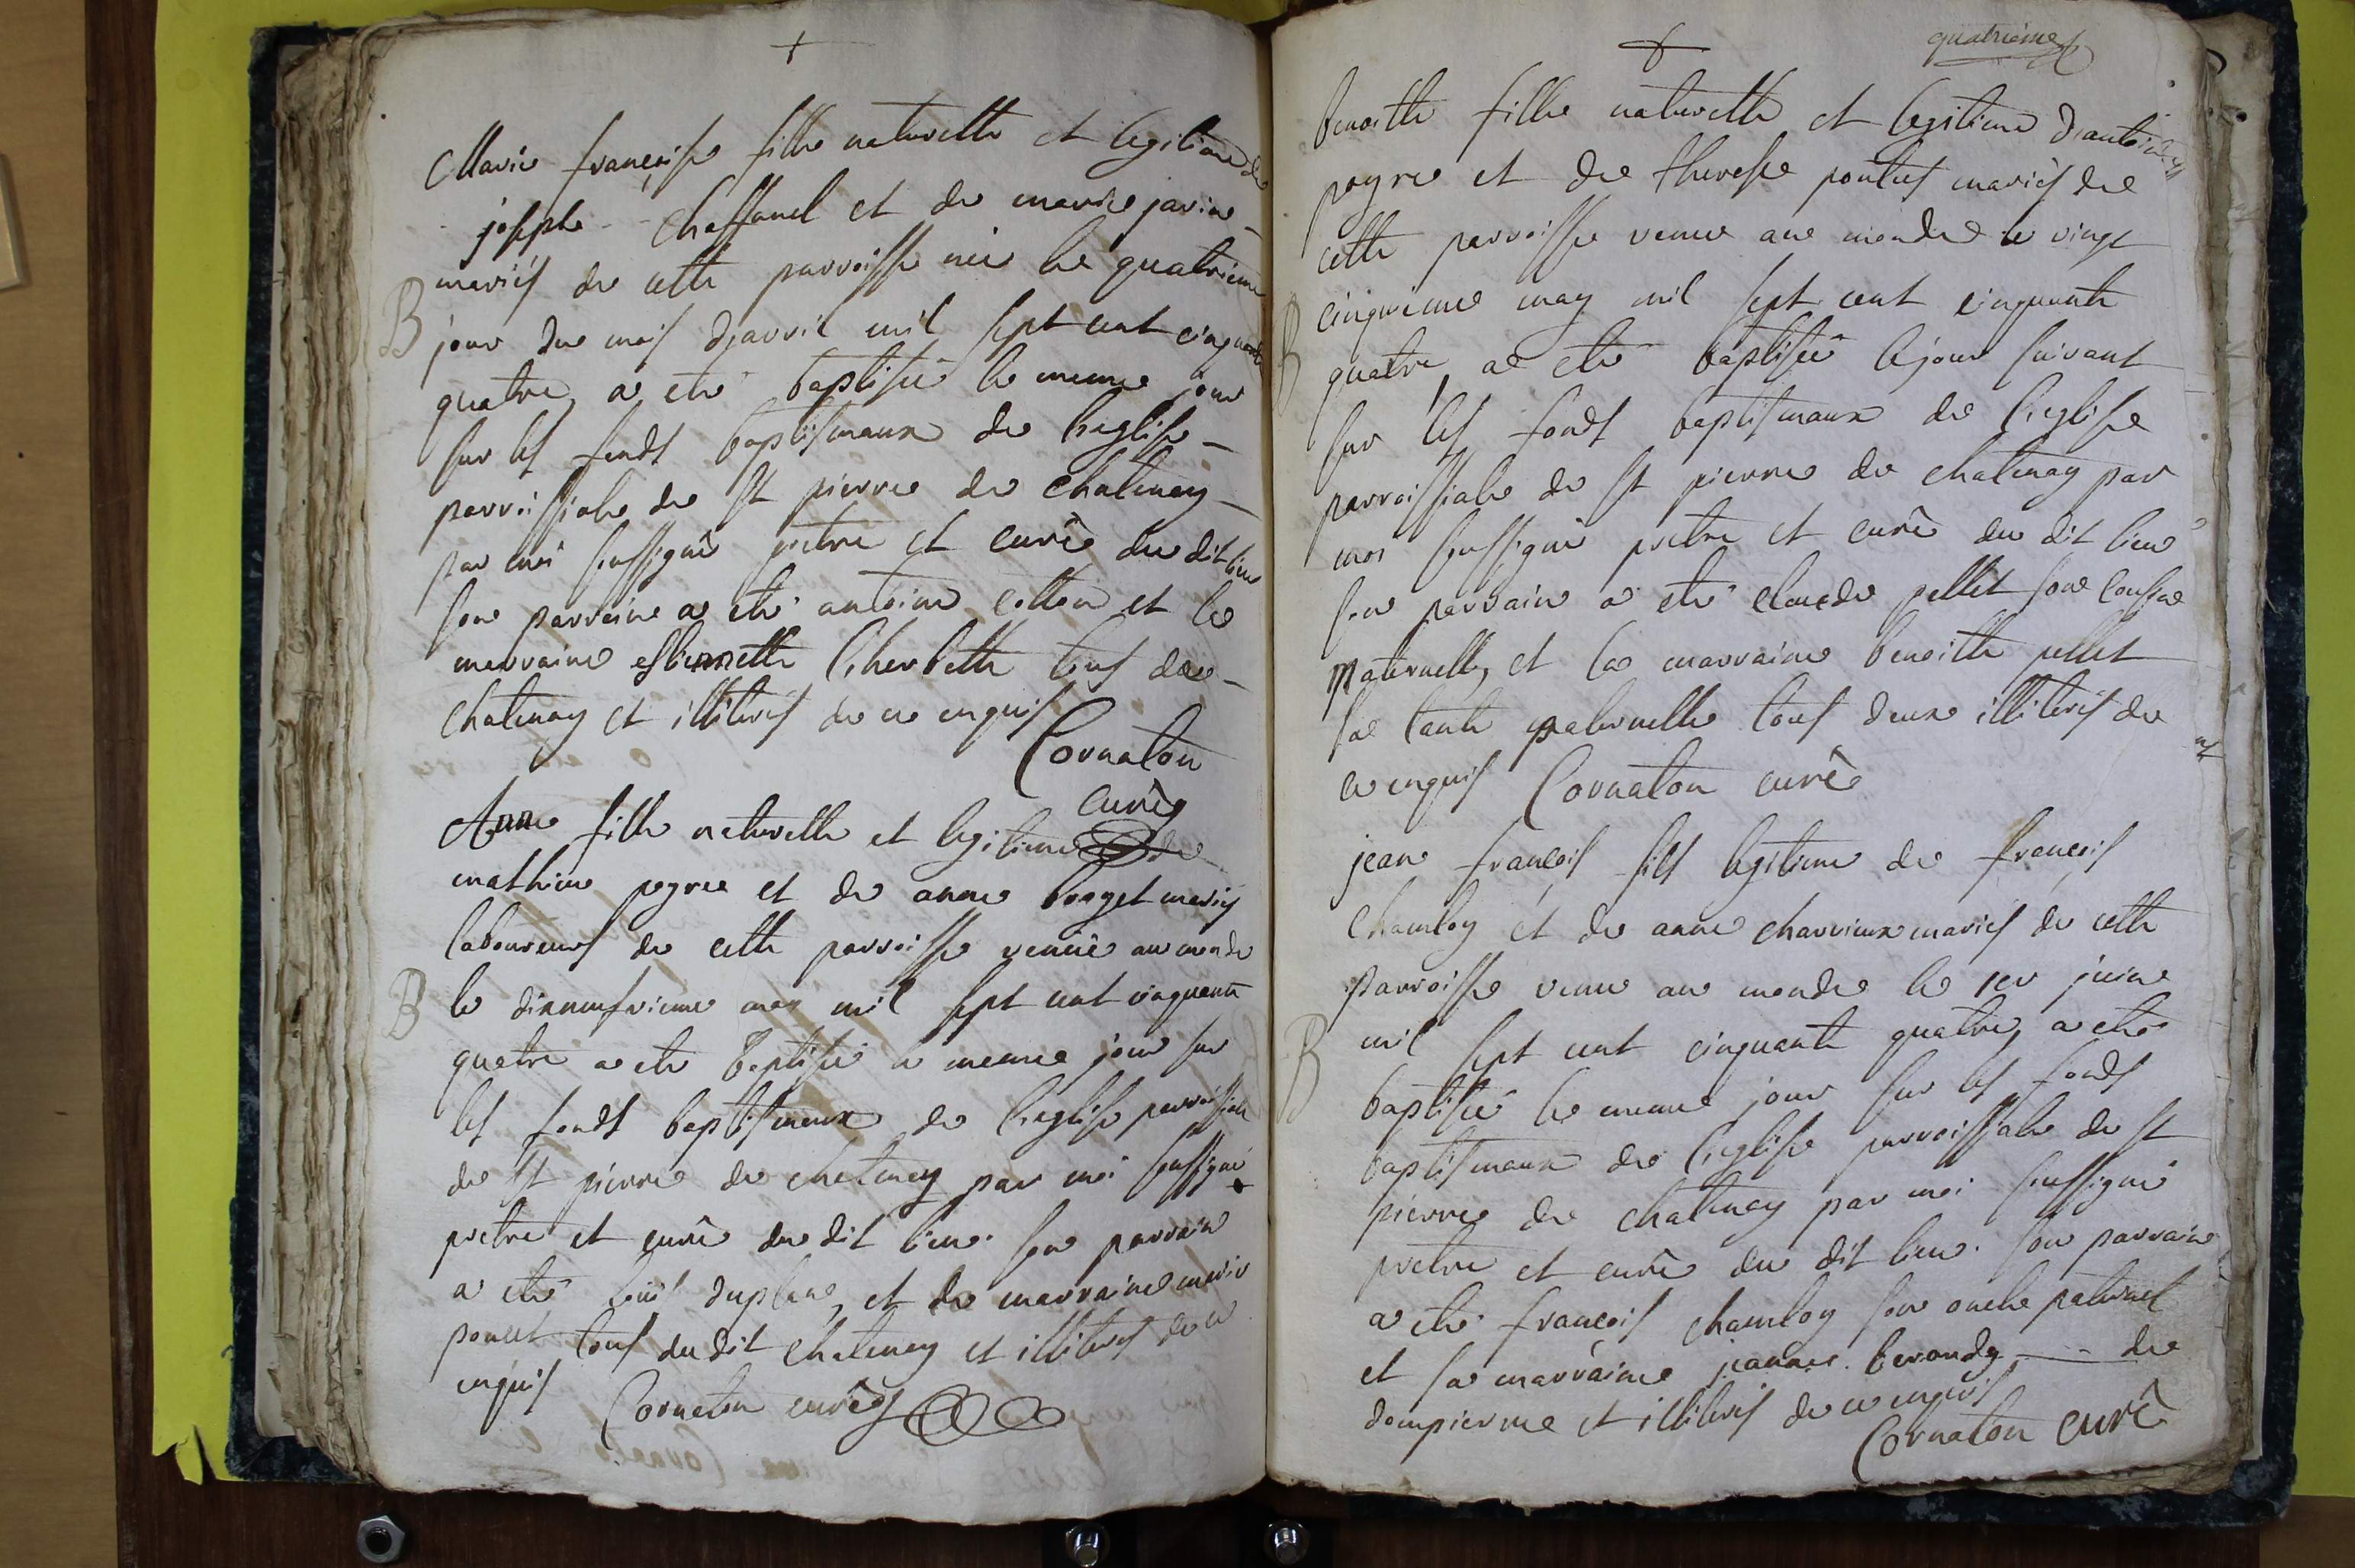 +
Marie françoise fille naturelle et legitime de
joseph chaffanel et de marie javin
mariés de cette parroisse née le quatrieme
B jour du mois d'avril mil sept cent cinquante
quatre, a eté baptisée le meme jour
sur les fonds baptismaux de l'eglise
parroissiale de st pierre de chatenay
par moi soussigné pretre et curé du dit lieu
son parrain a eté antoine cotton et la
marraine estiennette l'herbette tous de
chatenay et illiterés de ce enquis
Cornaton
curé
Anne fille naturelle et legitime de
mathieu pegre et de anne borget mariés
laboureurs de cette parroisse venuë au monde
B le dixneufvieme may mil sept cent cinquante
quatre a eté baptisée le meme jour sur
les fonds baptismaux de l'eglise parroissiale
de st pierre de chatenay par moi soussigné
pretre et curé du dit lieu. son parrain
a eté duplan, et la marraine marie
poncet tous du dit chatenay et illiterés de ce
enquis Cornaton curé
+
quatrième
benoitte fille naturelle et legitime d'antoine
peyre et de therese mariés de
cette parroisse venue au monde le vingt
cinquieme may mil sept cent cinquante
B quatre, a eté baptisée le jour suivant
sur les fonds baptismaux de l'eglise
parroissiale de st pierre de chatenay par
moi soussigné pretre et curé du dit lieu
son parrain a eté claude pellet son
maternelle, et la marraine benoitte pellet
sa tante maternelle tous deux illiterés de
ce enquis Cornaton curé
jean françois fils legitime de françois
chamboy et de anne charvieux mariés de cette
parroisse venu au monde le 1er juin
B mil sept cent cinquante quatre, a eté
baptisé le meme jour sur les fonds
baptismaux de l'eglise parroissiale de st
pierre de chatenay par moi soussigné
pretre et curé du dit lieu. son parrain
a eté françois chamboy son oncle paternel
et sa marraine jeanne berondy de
dompierre et illiterés de ce enquis
Cornaton curé